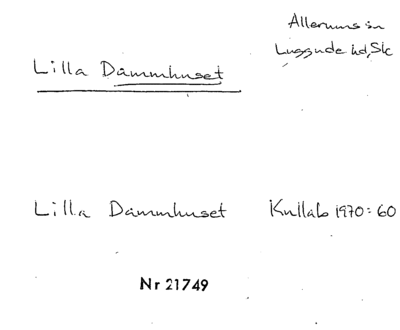 Allerums sn
Luggude hd, Sk
Lilla Dammhuset
Lilla Dammhuset Kullab 1970: 60
Nr 21749